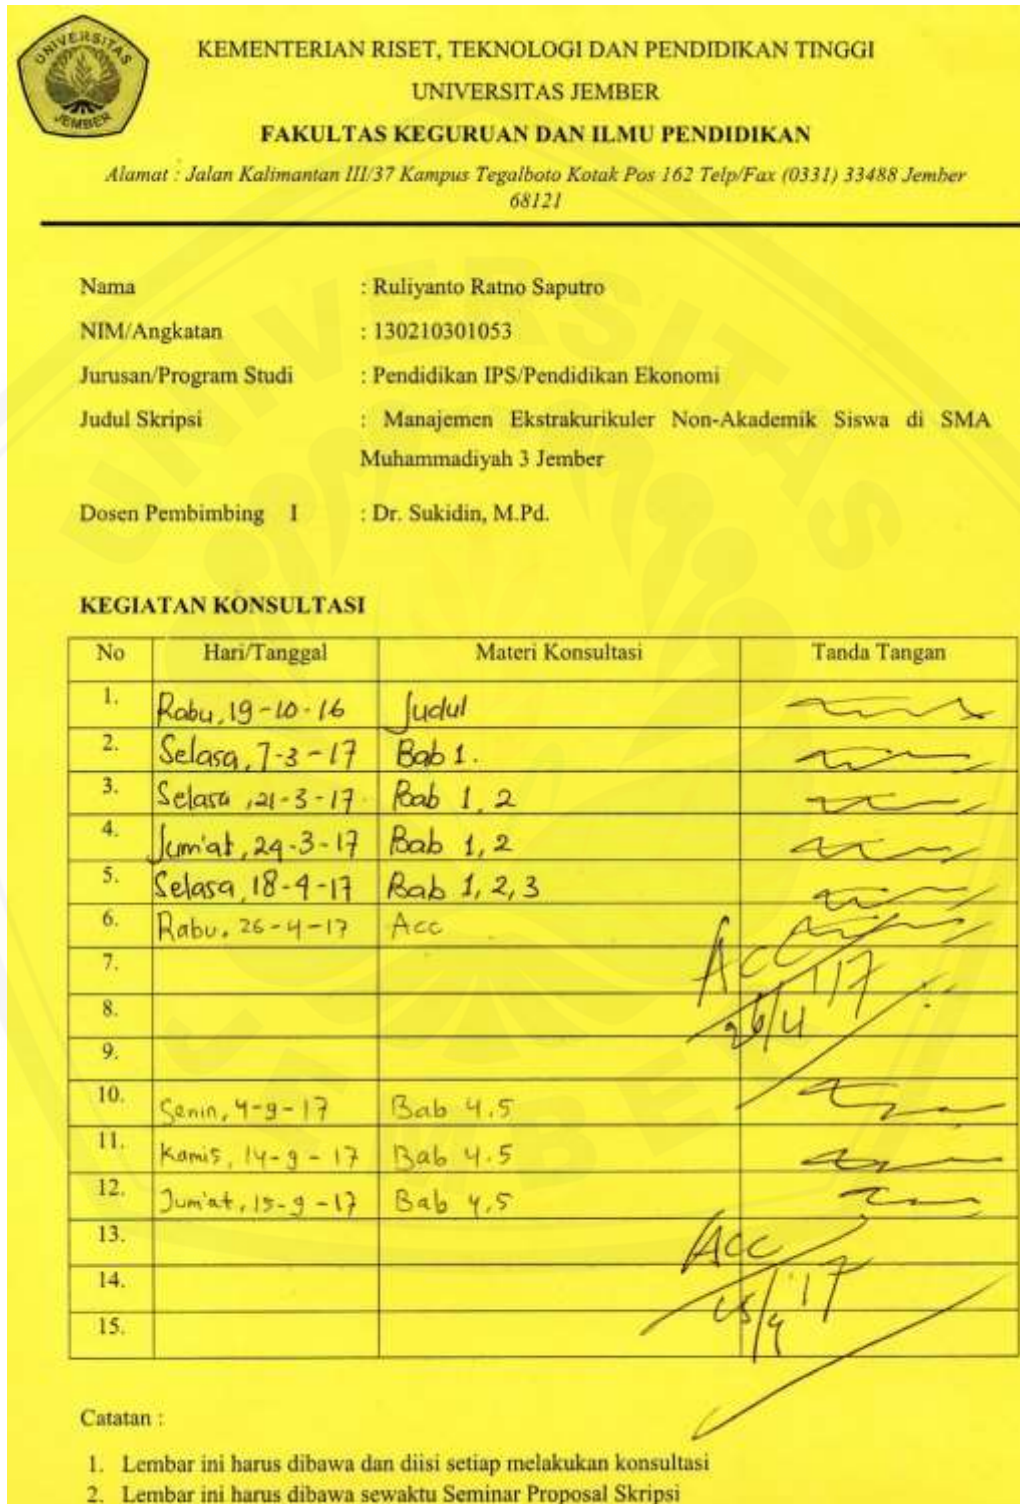 UNIVERSITAS
JEMBER
KEMENTERIAN RISET, TEKNOLOGI DAN PENDIDIKAN TINGGI
UNIVERSITAS JEMBER
FAKULTAS KEGURUAN DAN ILMU PENDIDIKAN
Alamat : Jalan Kalimantan III/37 Kampus Tegalboto Kotak Pos 162 Telp/Fax (0331) 33488 Jember
68121
Nama : Ruliyanto Ratno Saputro
NIM/Angkatan : 130210301053
Jurusan/Program Studi : Pendidikan IPS/Pendidikan Ekonomi
Judul Skripsi : Manajemen Ekstrakurikuler Non-Akademik Siswa di SMA
Muhammadiyah 3 Jember
Dosen Pembimbing I : Dr. Sukidin, M.Pd.
KEGIATAN KONSULTASI
No Hari/Tanggal Materi Konsultasi Tanda Tangan
1. Rabu, 19-10-16 Judul
2. Selasa, 7-3-17 Bab 1.
3. Selasa, 21-3-17 Bab 1, 2
4. Jum'at, 24-3-17 Bab 1, 2
5. Selasa, 18-4-17 Bab 1, 2, 3
6. Rabu, 26-4-17 Acc
7. Acc
8. 26/4 '17
9.
10. Senin, 4-9-17 Bab 4,5
11. Kamis, 14-9-17 Bab 4.5
12. Jum'at, 15-9-17 Bab 4,5
13. Acc
14. 15/9 '17
15.
Catatan :
1. Lembar ini harus dibawa dan diisi setiap melakukan konsultasi
2. Lembar ini harus dibawa sewaktu Seminar Proposal Skripsi
UNIVERSITAS
JEMBER